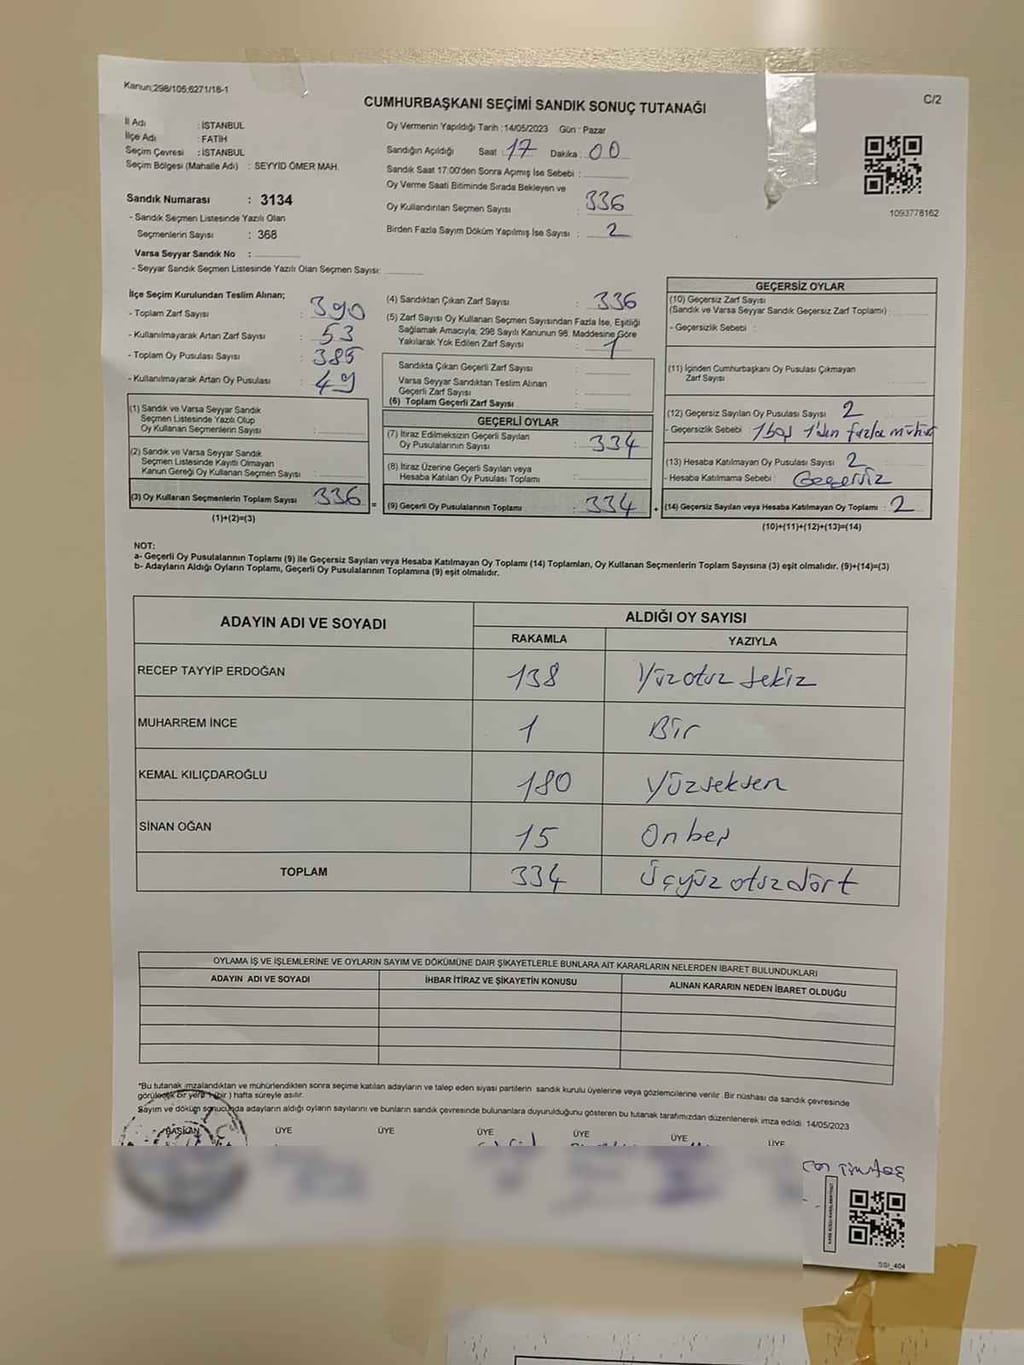 Kanun;298/105;6271/18-1
C/2
CUMHURBAŞKANI SEÇİMİ SANDIK SONUÇ TUTANAĞI
İl Adı : İSTANBUL
İlçe Adı : FATİH
Seçim Çevresi : İSTANBUL
Seçim Bölgesi (Mahalle Adı) : SEYYİD ÖMER MAH.
Oy Vermenin Yapıldığı Tarih :14/05/2023 Gün : Pazar
Sandığın Açıldığı Saat : 17 Dakika : 00
Sandık Saat 17:00'den Sonra Açmış İse Sebebi :
Oy Verme Saati Bitiminde Sırada Bekleyen ve
Oy Kullandırılan Seçmen Sayısı : 336
Birden Fazla Sayım Döküm Yapılmış İse Sayısı : 2
1093778162
Sandık Numarası : 3134
- Sandık Seçmen Listesinde Yazılı Olan
Seçmenlerin Sayısı : 368
Varsa Seyyar Sandık No :
- Seyyar Sandık Seçmen Listesinde Yazılı Olan Seçmen Sayısı:
İlçe Seçim Kurulundan Teslim Alınan;
- Toplam Zarf Sayısı : 390
- Kullanılmayarak Artan Zarf Sayısı : 53
- Toplam Oy Pusulası Sayısı : 385
- Kullanılmayarak Artan Oy Pusulası : 49
(1) Sandık ve Varsa Seyyar Sandık
Seçmen Listesinde Yazılı Olup
Oy Kullanan Seçmenlerin Sayısı :
(2) Sandık ve Varsa Seyyar Sandık
Seçmen Listesinde Kayıtlı Olmayan
Kanun Gereği Oy Kullanan Seçmen Sayısı :
(3) Oy Kullanan Seçmenlerin Toplam Sayısı 336 =
(1)+(2)=(3)
(4) Sandıktan Çıkan Zarf Sayısı : 336
(5) Zarf Sayısı Oy Kullanan Seçmen Sayısından Fazla İse, Eşitliği
Sağlamak Amacıyla; 298 Sayılı Kanunun 98. Maddesine Göre
Yakılarak Yok Edilen Zarf Sayısı : 1
Sandıkta Çıkan Geçerli Zarf Sayısı :
Varsa Seyyar Sandıktan Teslim Alınan
Geçerli Zarf Sayısı :
(6) Toplam Geçerli Zarf Sayısı :
GEÇERLİ OYLAR
(7) İtiraz Edilmeksizin Geçerli Sayılan
Oy Pusulalarının Sayısı : 334
(8) İtiraz Üzerine Geçerli Sayılan veya
Hesaba Katılan Oy Pusulası Toplamı :
(9) Geçerli Oy Pusulalarının Toplamı : 334 +
GEÇERSİZ OYLAR
(10) Geçersiz Zarf Sayısı
(Sandık ve Varsa Seyyar Sandık Geçersiz Zarf Toplamı) :
- Geçersizlik Sebebi :
(11) İçinden Cumhurbaşkanı Oy Pusulası Çıkmayan
Zarf Sayısı
(12) Geçersiz Sayılan Oy Pusulası Sayısı : 2
- Geçersizlik Sebebi : 1 boş 1'den fazla mühür
(13) Hesaba Katılmayan Oy Pusulası Sayısı : 2
- Hesaba Katılmama Sebebi : Geçersiz
(14) Geçersiz Sayılan veya Hesaba Katılmayan Oy Toplamı : 2
(10)+(11)+(12)+(13)=(14)
NOT:
a- Geçerli Oy Pusulalarının Toplamı (9) ile Geçersiz Sayılan veya Hesaba Katılmayan Oy Toplamı (14) Toplamları, Oy Kullanan Seçmenlerin Toplam Sayısına (3) eşit olmalıdır. (9)+(14)=(3)
b- Adayların Aldığı Oyların Toplamı, Geçerli Oy Pusulalarının Toplamına (9) eşit olmalıdır.
ADAYIN ADI VE SOYADI
ALDIĞI OY SAYISI
RAKAMLA YAZIYLA
RECEP TAYYİP ERDOĞAN 138 Yüzotuz sekiz
MUHARREM İNCE 1 Bir
KEMAL KILIÇDAROĞLU 180 Yüzseksen
SİNAN OĞAN 15 Onbeş
TOPLAM 334 Üçyüz otuzdört
OYLAMA İŞ VE İŞLEMLERİNE VE OYLARIN SAYIM VE DÖKÜMÜNE DAİR ŞİKAYETLERLE BUNLARA AİT KARARLARIN NELERDEN İBARET BULUNDUKLARI
ADAYIN ADI VE SOYADI İHBAR İTİRAZ VE ŞİKAYETİN KONUSU ALINAN KARARIN NEDEN İBARET OLDUĞU
*Bu tutanak imzalandıktan ve mühürlendikten sonra seçime katılan adayların ve talep eden siyasi partilerin sandık kurulu üyelerine veya gözlemcilerine verilir. Bir nüshası da sandık çevresinde
görülecek bir yere 1 (bir ) hafta süreyle asılır.
Sayım ve döküm sonucunda adayların aldığı oyların sayılarını ve bunların sandık çevresinde bulunanlara duyurulduğunu gösteren bu tutanak tarafımızdan düzenlenerek imza edildi. 14/05/2023
BAŞKAN ÜYE ÜYE ÜYE ÜYE ÜYE ÜYE
SSI_404